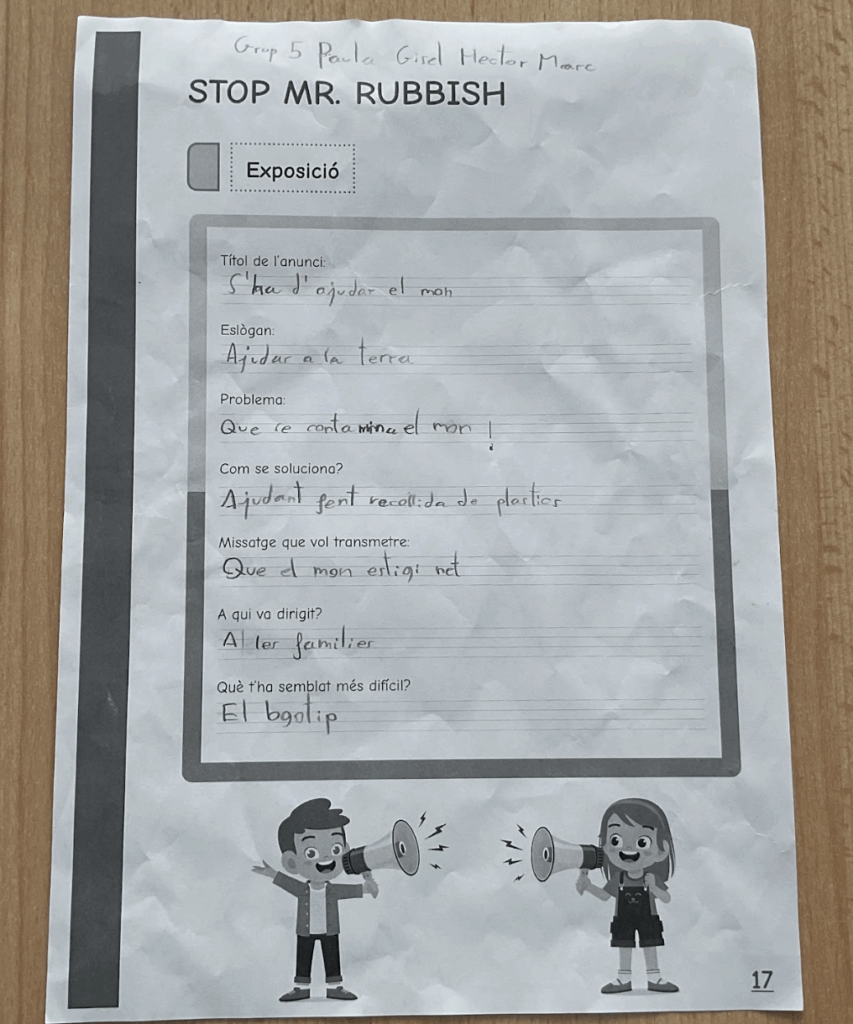 Grup 5 Paula Gisel Hector Marc
STOP MR. RUBBISH
Exposició
Títol de l'anunci:
S'ha d'ajudar el mon
Eslògan:
Ajudar a la terra
Problema:
Que se contamina el mon !
Com se soluciona?
Ajudant fent recollida de plastics
Missatge que vol transmetre:
Que el mon estigi net
A qui va dirigit?
A les families
Què t'ha semblat més difícil?
El logotip
17